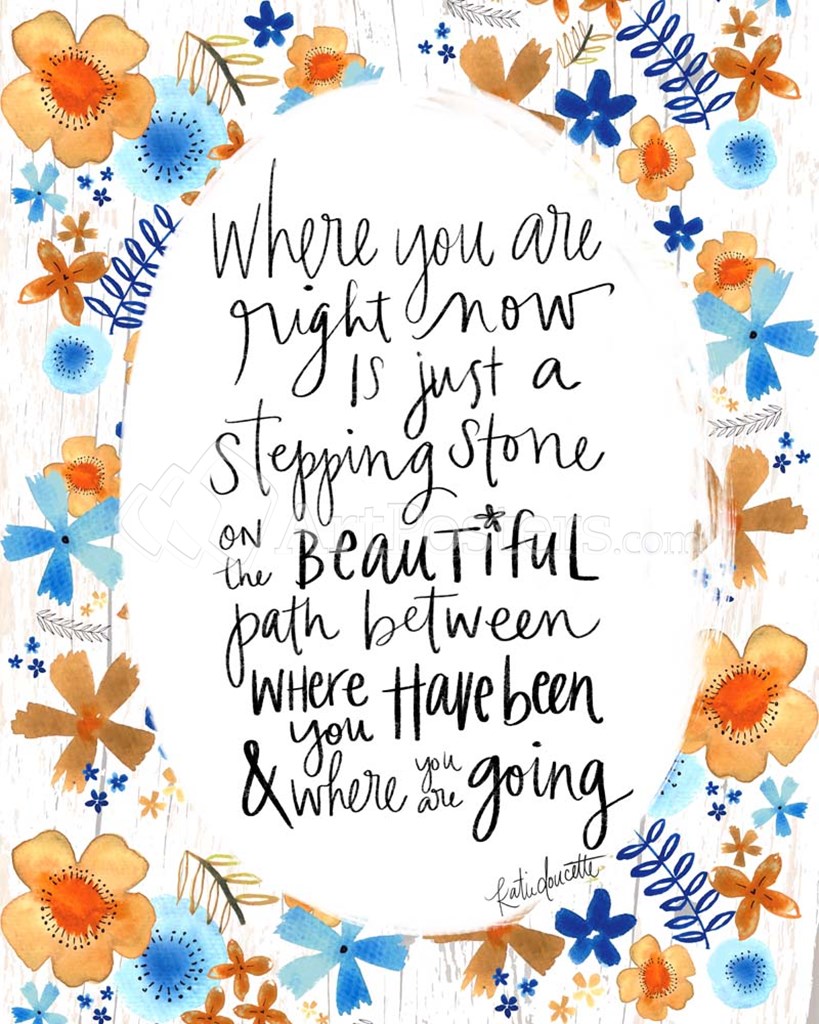 Where you are
right now
is just a
stepping stone
on the BEAUTIFUL
path between
WHERE you HAVE been
& where you are going
Katie doucette
ArtPosters.com